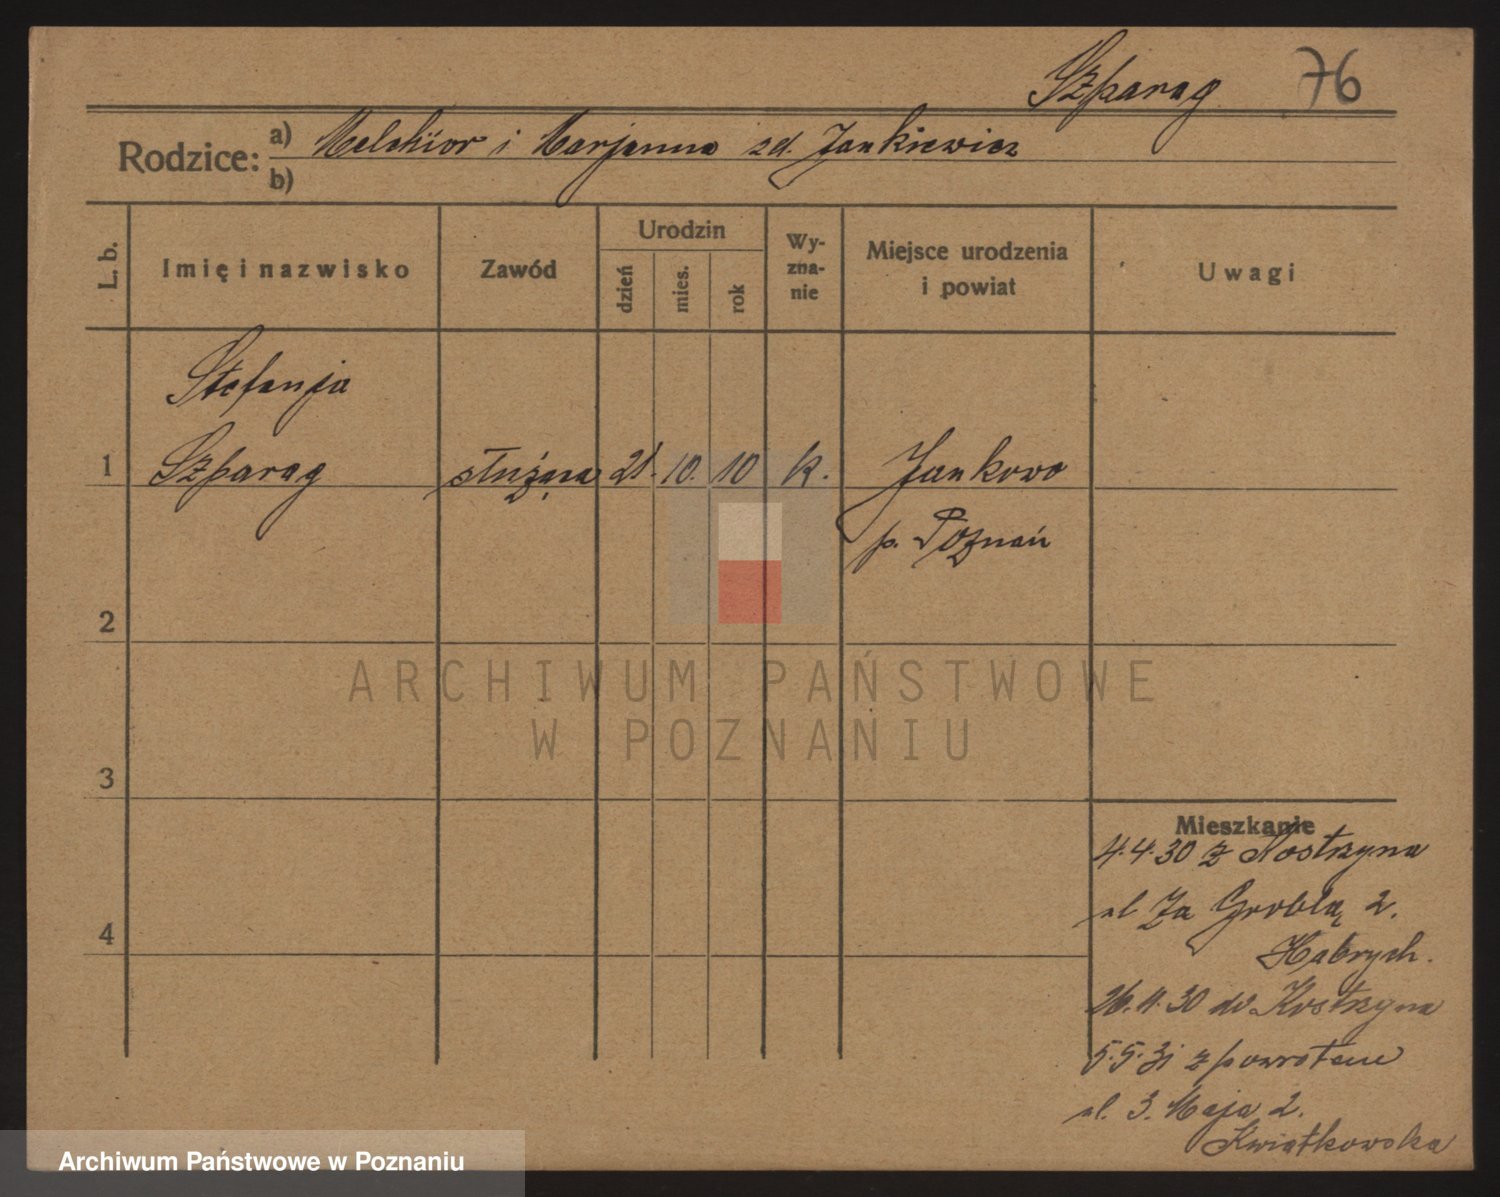 Szparag 76
Rodzice: a) Melchior i Marjanna zd. Jankiewicz
b)
L. b.
Imię i nazwisko
Zawód
Urodzin
dzień
mies.
rok
Wy-
zna-
nie
Miejsce urodzenia
i powiat
Uwagi
Stefanja
1 Szparag służąca 21. 10. 10 k. Jankowo
p. Poznań
2
ARCHIWUM PAŃSTWOWE
W POZNANIU
3
Mieszkanie
4.4.30 z Kostrzyna
ul Za Groblą 2.
4
Habrych.
26.4.30 do Kostrzyna
5.5.31 z powrotem
ul. 3. Maja 2.
Kwiatkowska
Archiwum Państwowe w Poznaniu